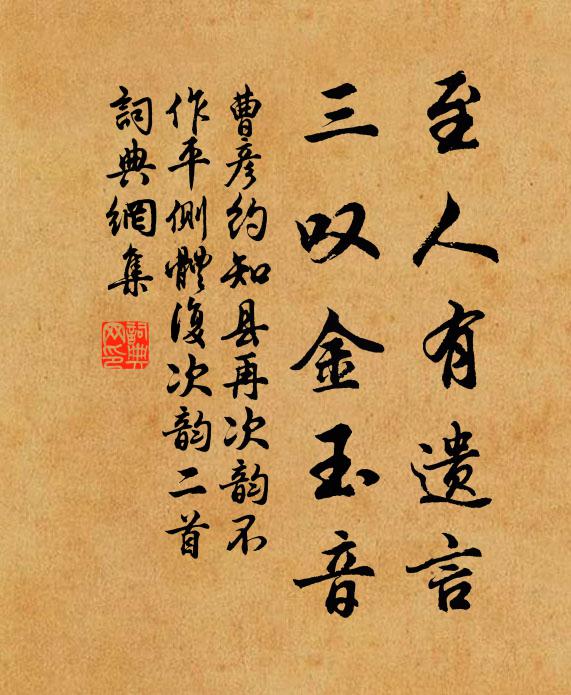 至人有遗言
三叹金玉音
曹彦约知县再次韵不
作平侧體復次韵二首
詞典網集
詞典网印